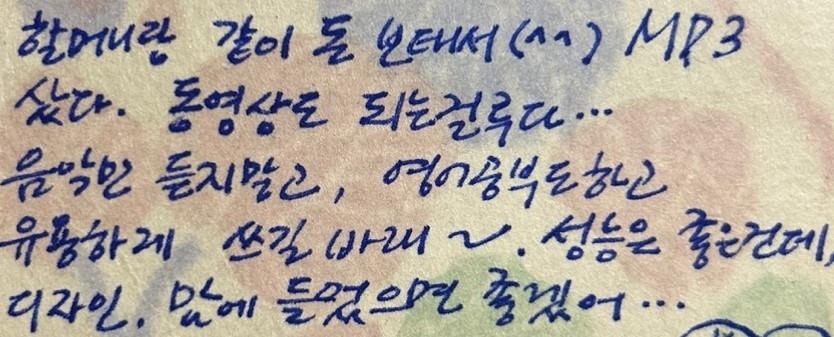 할머니랑 같이 돈 보태서(^^) MP3
샀다. 동영상도 되는걸루다...
음악만 듣지말고, 영어공부도하고
유용하게 쓰길 바래~. 성능은 좋은건데,
디자인. 맘에 들었으면 좋겠어...